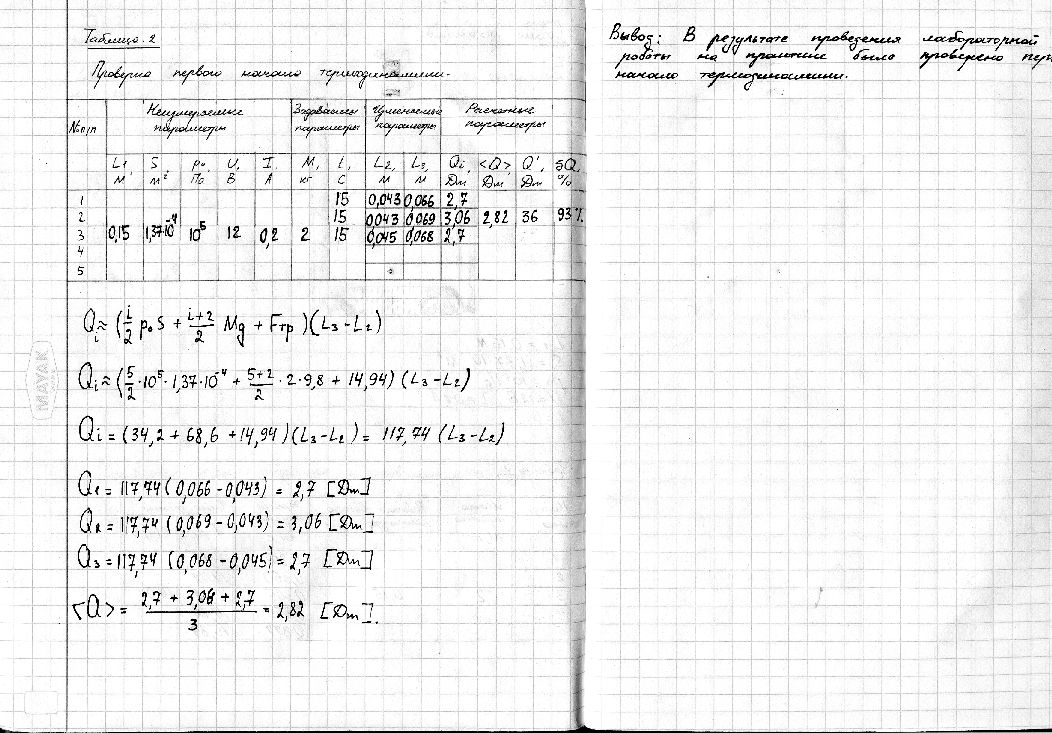 Таблица. 2
Проверка первого начала термодинамики.
№ п/п Неизмеряемые параметры Задаваемые параметры Измеряемые параметры Расчетные параметры
L1, м S, м² p₀, Па U, В I, А M, кг t, С L2, м L3, м Qi, Дж <Q>, Дж Q', Дж δQ, %
1 15 0,043 0,066 2,7
2 15 0,043 0,069 3,06 2,82 36 93%
3 0,15 1,37·10⁻⁴ 10⁵ 12 0,2 2 15 0,045 0,068 2,7
4
5
Qi ≈ (i/2 p₀S + (i+2)/2 Mg + Fтр)(L3 – L2)
Qi ≈ (5/2 · 10⁵ · 1,37·10⁻⁴ + (5+2)/2 · 2 · 9,8 + 14,94) (L3 – L2)
Qi = (34,2 + 68,6 + 14,94)(L3 – L2) = 117,74 (L3 – L2)
Q1 = 117,74 (0,066 – 0,043) = 2,7 [Дж]
Q2 = 117,74 (0,069 – 0,043) = 3,06 [Дж]
Q3 = 117,74 (0,068 – 0,045) = 2,7 [Дж]
<Q> = (2,7 + 3,06 + 2,7)/3 = 2,82 [Дж].
MAYAK
Вывод: В результате проведения лабораторной
работы на практике было проверено пер
начало термодинамики.